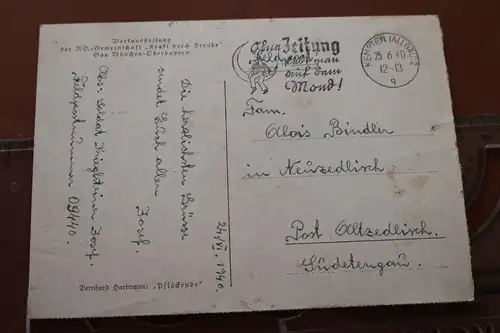 Werkausstellung
der NS.-Gemeinschaft „Kraft durch Freude"
Gau München-Oberbayern
Ohne Zeitung
lebt man
auf dem
Mond!
KEMPTEN (ALLGÄU) 2
25.6.40
12-13
q
Feldpost
24. VI. 1940.
Die herzlichsten Grüsse
sendet Euch allen
Josef.
Abs: Soldat Josef.
Feldpostnummer 09440.
Bernhard Hartmann: „Pflückende"
Fam.
Alois Bindler
in Neuzedlisch
Post Altzedlisch.
Sudetengau.